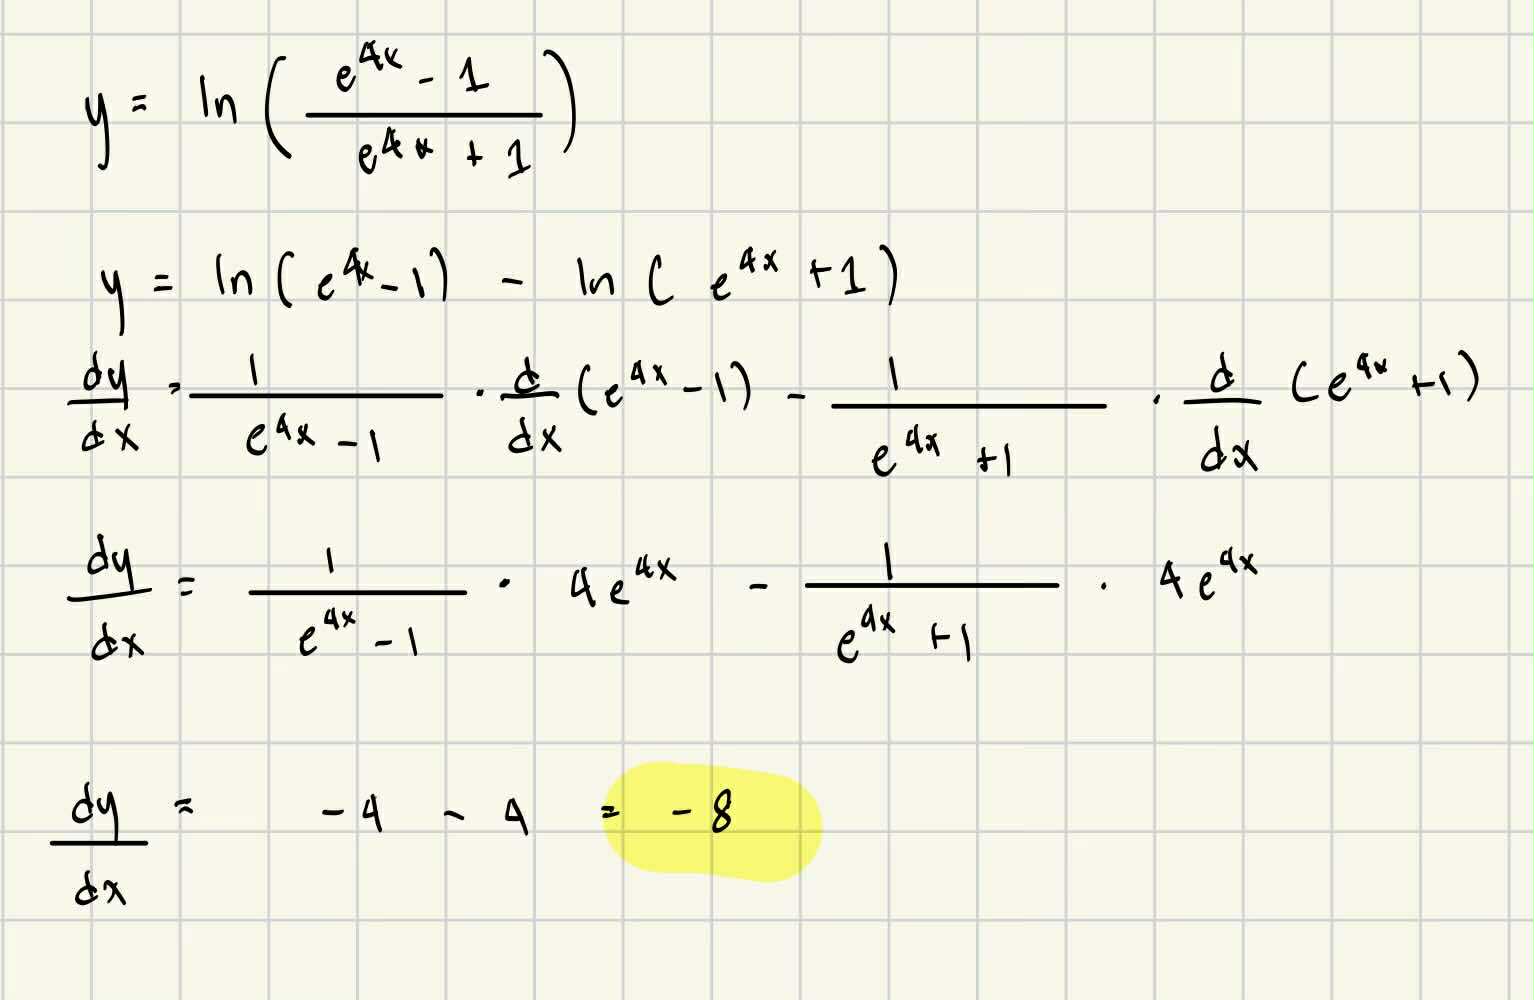 y = ln ( (e^{4x} - 1) / (e^{4x} + 1) )
y = ln ( e^{4x} - 1 ) - ln ( e^{4x} + 1 )
dy/dx = 1/(e^{4x} - 1) · d/dx (e^{4x} - 1) - 1/(e^{4x} + 1) · d/dx (e^{4x} + 1)
dy/dx = 1/(e^{4x} - 1) · 4e^{4x} - 1/(e^{4x} + 1) · 4e^{4x}
dy/dx = - 4 - 4 = - 8